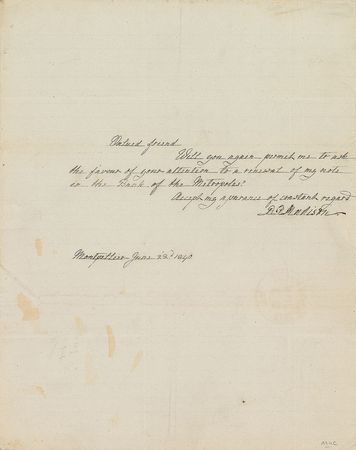 Valued friend
Will you again permit me to ask
the favour of your attention to a renewal of my note
in the Bank of the Metropolis?
Accept my assurance of constant regard
D. P. Madison
Montpellier June 22d. 1840